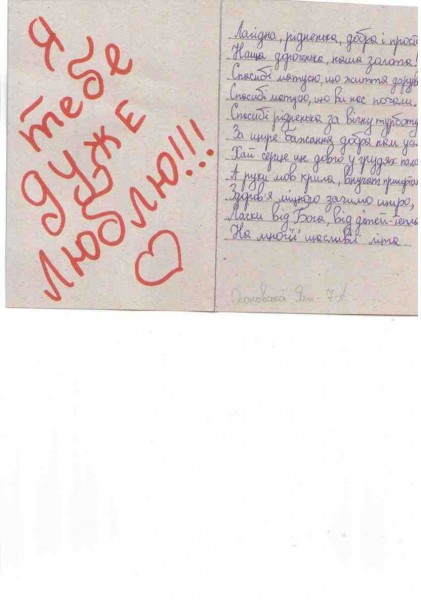 Я
тебе
дуже
люблю!!!
Лагідна, рідненька, добра і прост
Наша дорогенька, наша золота!
Спасибі матусю, що життя дарув
Спасибі матусю, що ви нас
Спасибі рідненька за вічну турботу
За щире бажання добра нам
Хай серце ще довго у грудях пала
А руки мов крила,
Здоров'я міцного зичимо щиро,
Ласки від Бога, від дітей
На многії щасливі літа
7-А